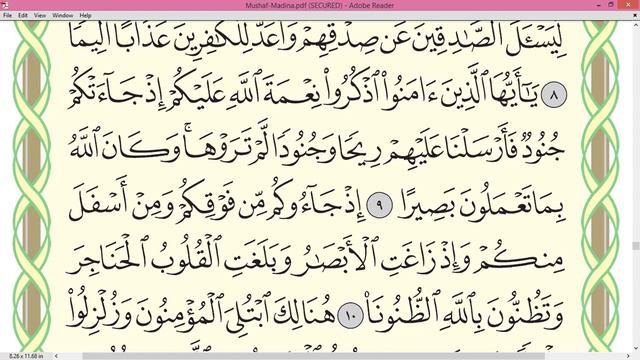 Mushaf-Madina.pdf (SECURED) - Adobe Reader
File Edit View Window Help
لِّيَسْـَٔلَ ٱلصَّـٰدِقِينَ عَن صِدْقِهِمْ وَأَعَدَّ لِلْكَـٰفِرِينَ عَذَابًا أَلِيمًا
٨ يَـٰٓأَيُّهَا ٱلَّذِينَ ءَامَنُوا۟ ٱذْكُرُوا۟ نِعْمَةَ ٱللَّهِ عَلَيْكُمْ إِذْ جَآءَتْكُمْ
جُنُودٌ فَأَرْسَلْنَا عَلَيْهِمْ رِيحًا وَجُنُودًا لَّمْ تَرَوْهَا ۚ وَكَانَ ٱللَّهُ
بِمَا تَعْمَلُونَ بَصِيرًا ٩ إِذْ جَآءُوكُم مِّن فَوْقِكُمْ وَمِنْ أَسْفَلَ
مِنكُمْ وَإِذْ زَاغَتِ ٱلْأَبْصَـٰرُ وَبَلَغَتِ ٱلْقُلُوبُ ٱلْحَنَاجِرَ
وَتَظُنُّونَ بِٱللَّهِ ٱلظُّنُونَا۠ ١٠ هُنَالِكَ ٱبْتُلِىَ ٱلْمُؤْمِنُونَ وَزُلْزِلُوا۟
8.26 x 11.68 in